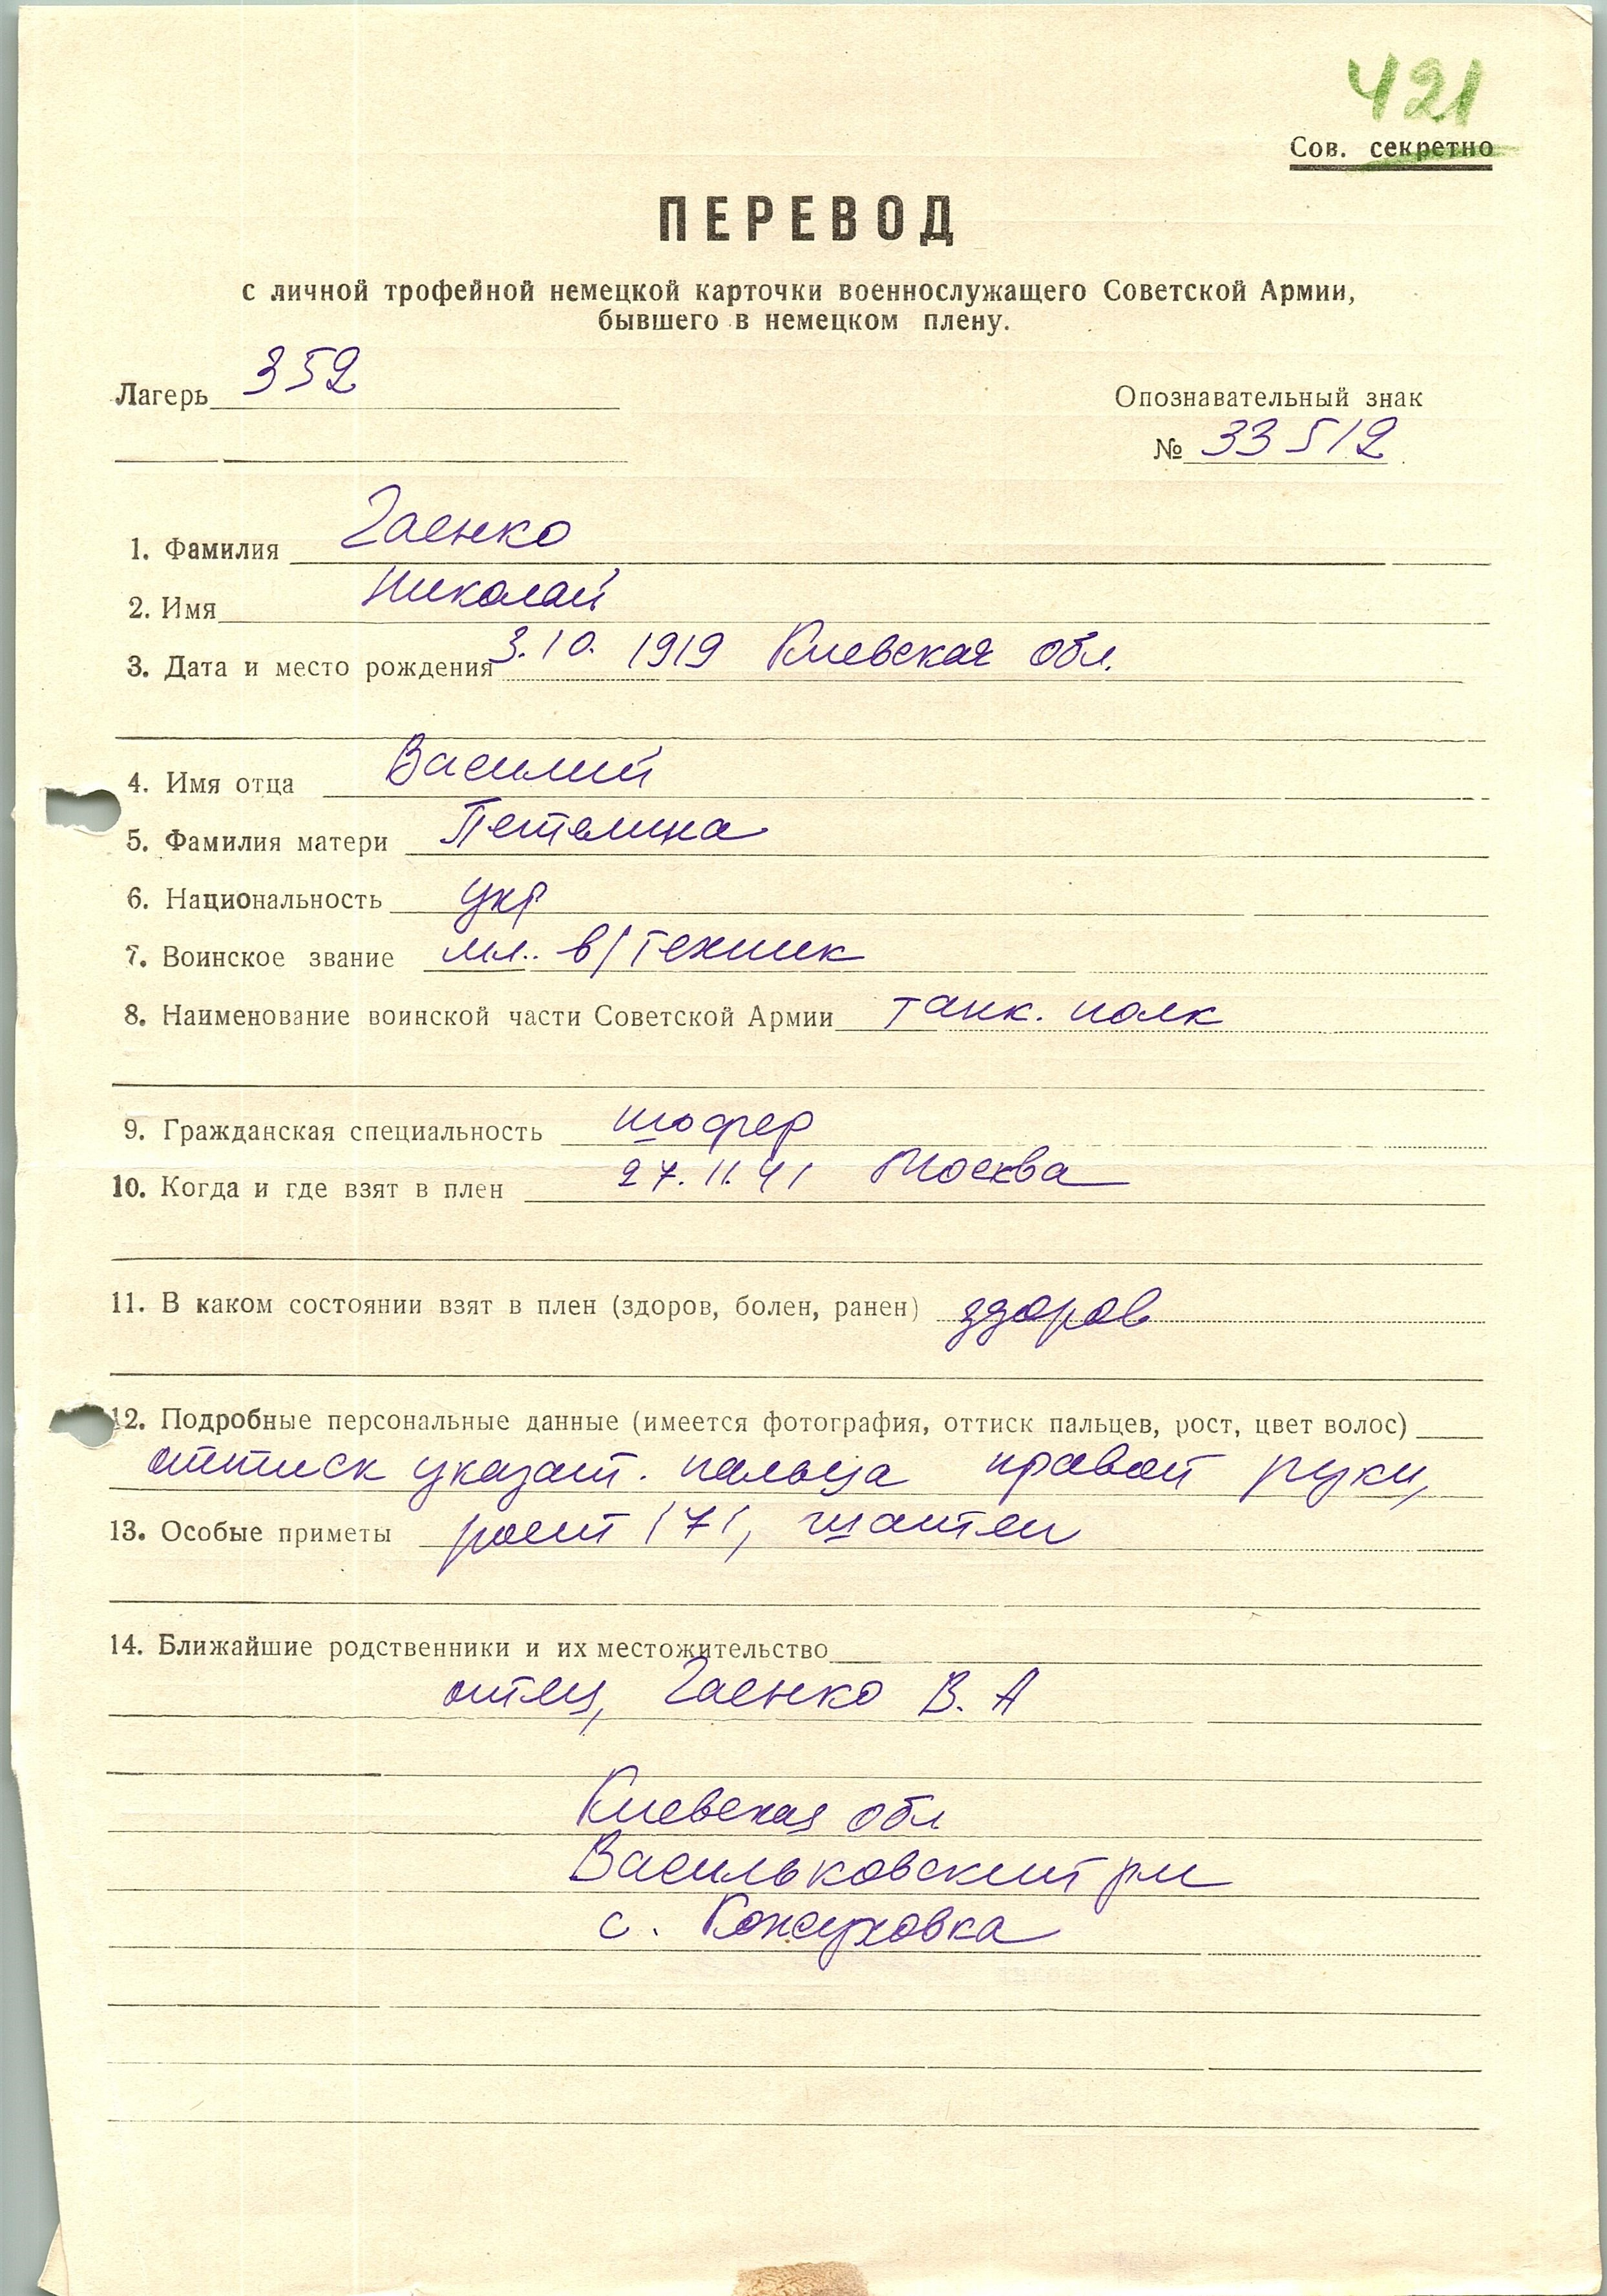 421
Сов. секретно
ПЕРЕВОД
с личной трофейной немецкой карточки военнослужащего Советской Армии,
бывшего в немецком плену.
Лагерь 352
Опознавательный знак
№ 33512
1. Фамилия Гаенко
2. Имя Николай
3. Дата и место рождения 3.10. 1919 Киевская обл.
4. Имя отца Василий
5. Фамилия матери Петелина
6. Национальность укр
7. Воинское звание мл. в/техник
8. Наименование воинской части Советской Армии танк. полк
9. Гражданская специальность шофер
10. Когда и где взят в плен 27.11.41 Москва
11. В каком состоянии взят в плен (здоров, болен, ранен) здоров
12. Подробные персональные данные (имеется фотография, оттиск пальцев, рост, цвет волос)
оттиск указат. пальца правой руки,
13. Особые приметы рост 171, шатен
14. Ближайшие родственники и их местожительство
отец, Гаенко В. А
Киевская обл
Васильковский рн
с. Кожуховка